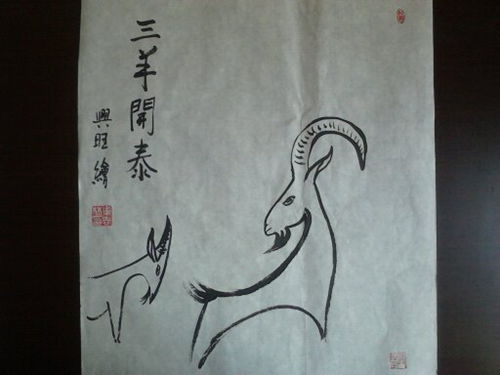 三羊開泰
興旺繪